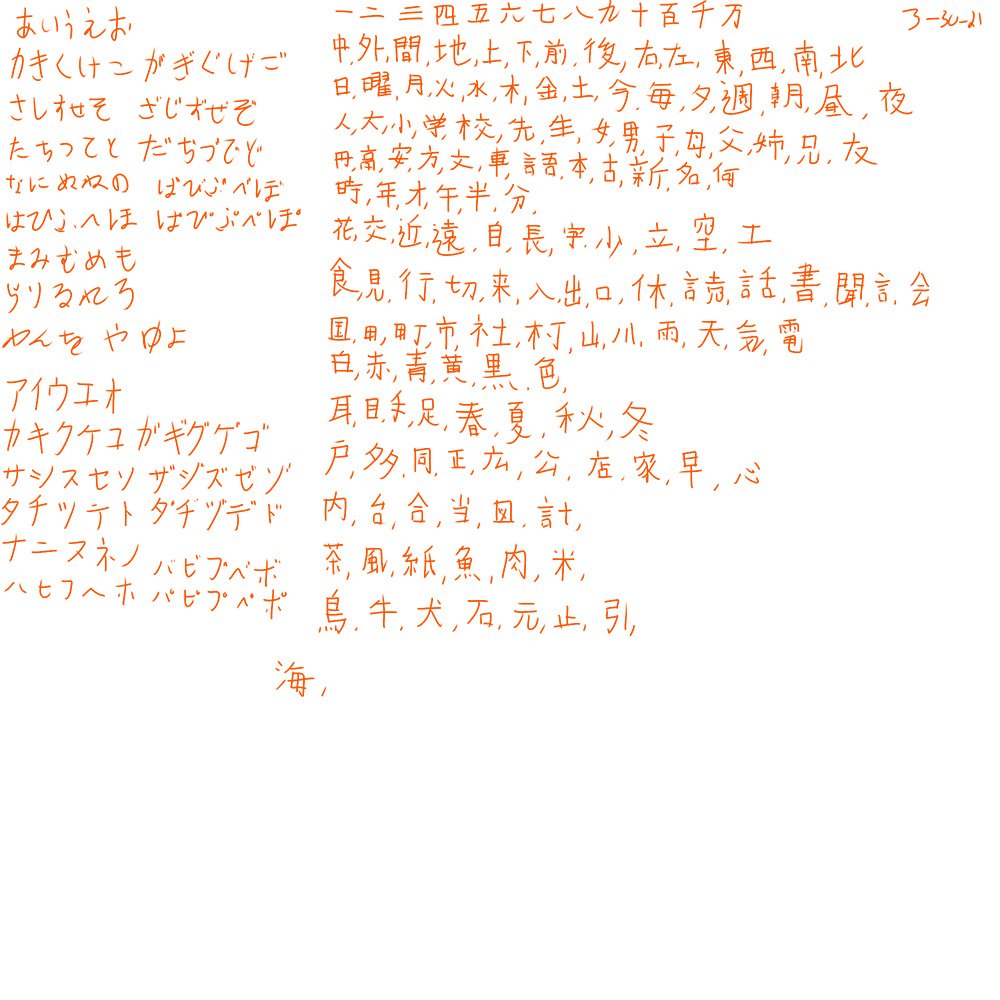 あいうえお
かきくけこ がぎぐげご
さしすせそ ざじずぜぞ
たちつてと だぢづでど
なにぬねの ばびぶべぼ
はひふへほ ぱぴぷぺぽ
まみむめも
らりるれろ
わんを や ゆ よ
アイウエオ
カキクケコ ガギグゲゴ
サシスセソ ザジズゼゾ
タチツテト ダヂヅデド
ナニヌネノ バビブベボ
ハヒフヘホ パピプペポ
一二三四五六七八九十百千万
中,外,間,地,上,下,前,後,右,左,東,西,南,北
日,曜,月,火,水,木,金,土,今,毎,夕,週,朝,昼,夜
人,大,小,学,校,先,生,女,男,子,母,父,姉,兄,友
円,高,安,方,文,車,語,本,古,新,名,何
時,年,才,午,半,分,
花,交,近,遠,自,長,字,少,立,空,工
食,見,行,切,来,入,出,口,休,読,話,書,聞,言,会
国,田,町,市,社,村,山,川,雨,天,気,電
白,赤,青,黄,黒,色,
耳,目,手,足,春,夏,秋,冬
戸,多,同,正,広,公,店,家,早,心
内,台,合,当,図,計,
茶,風,紙,魚,肉,米,
鳥,牛,犬,石,元,止,引,
海,
3-30-21